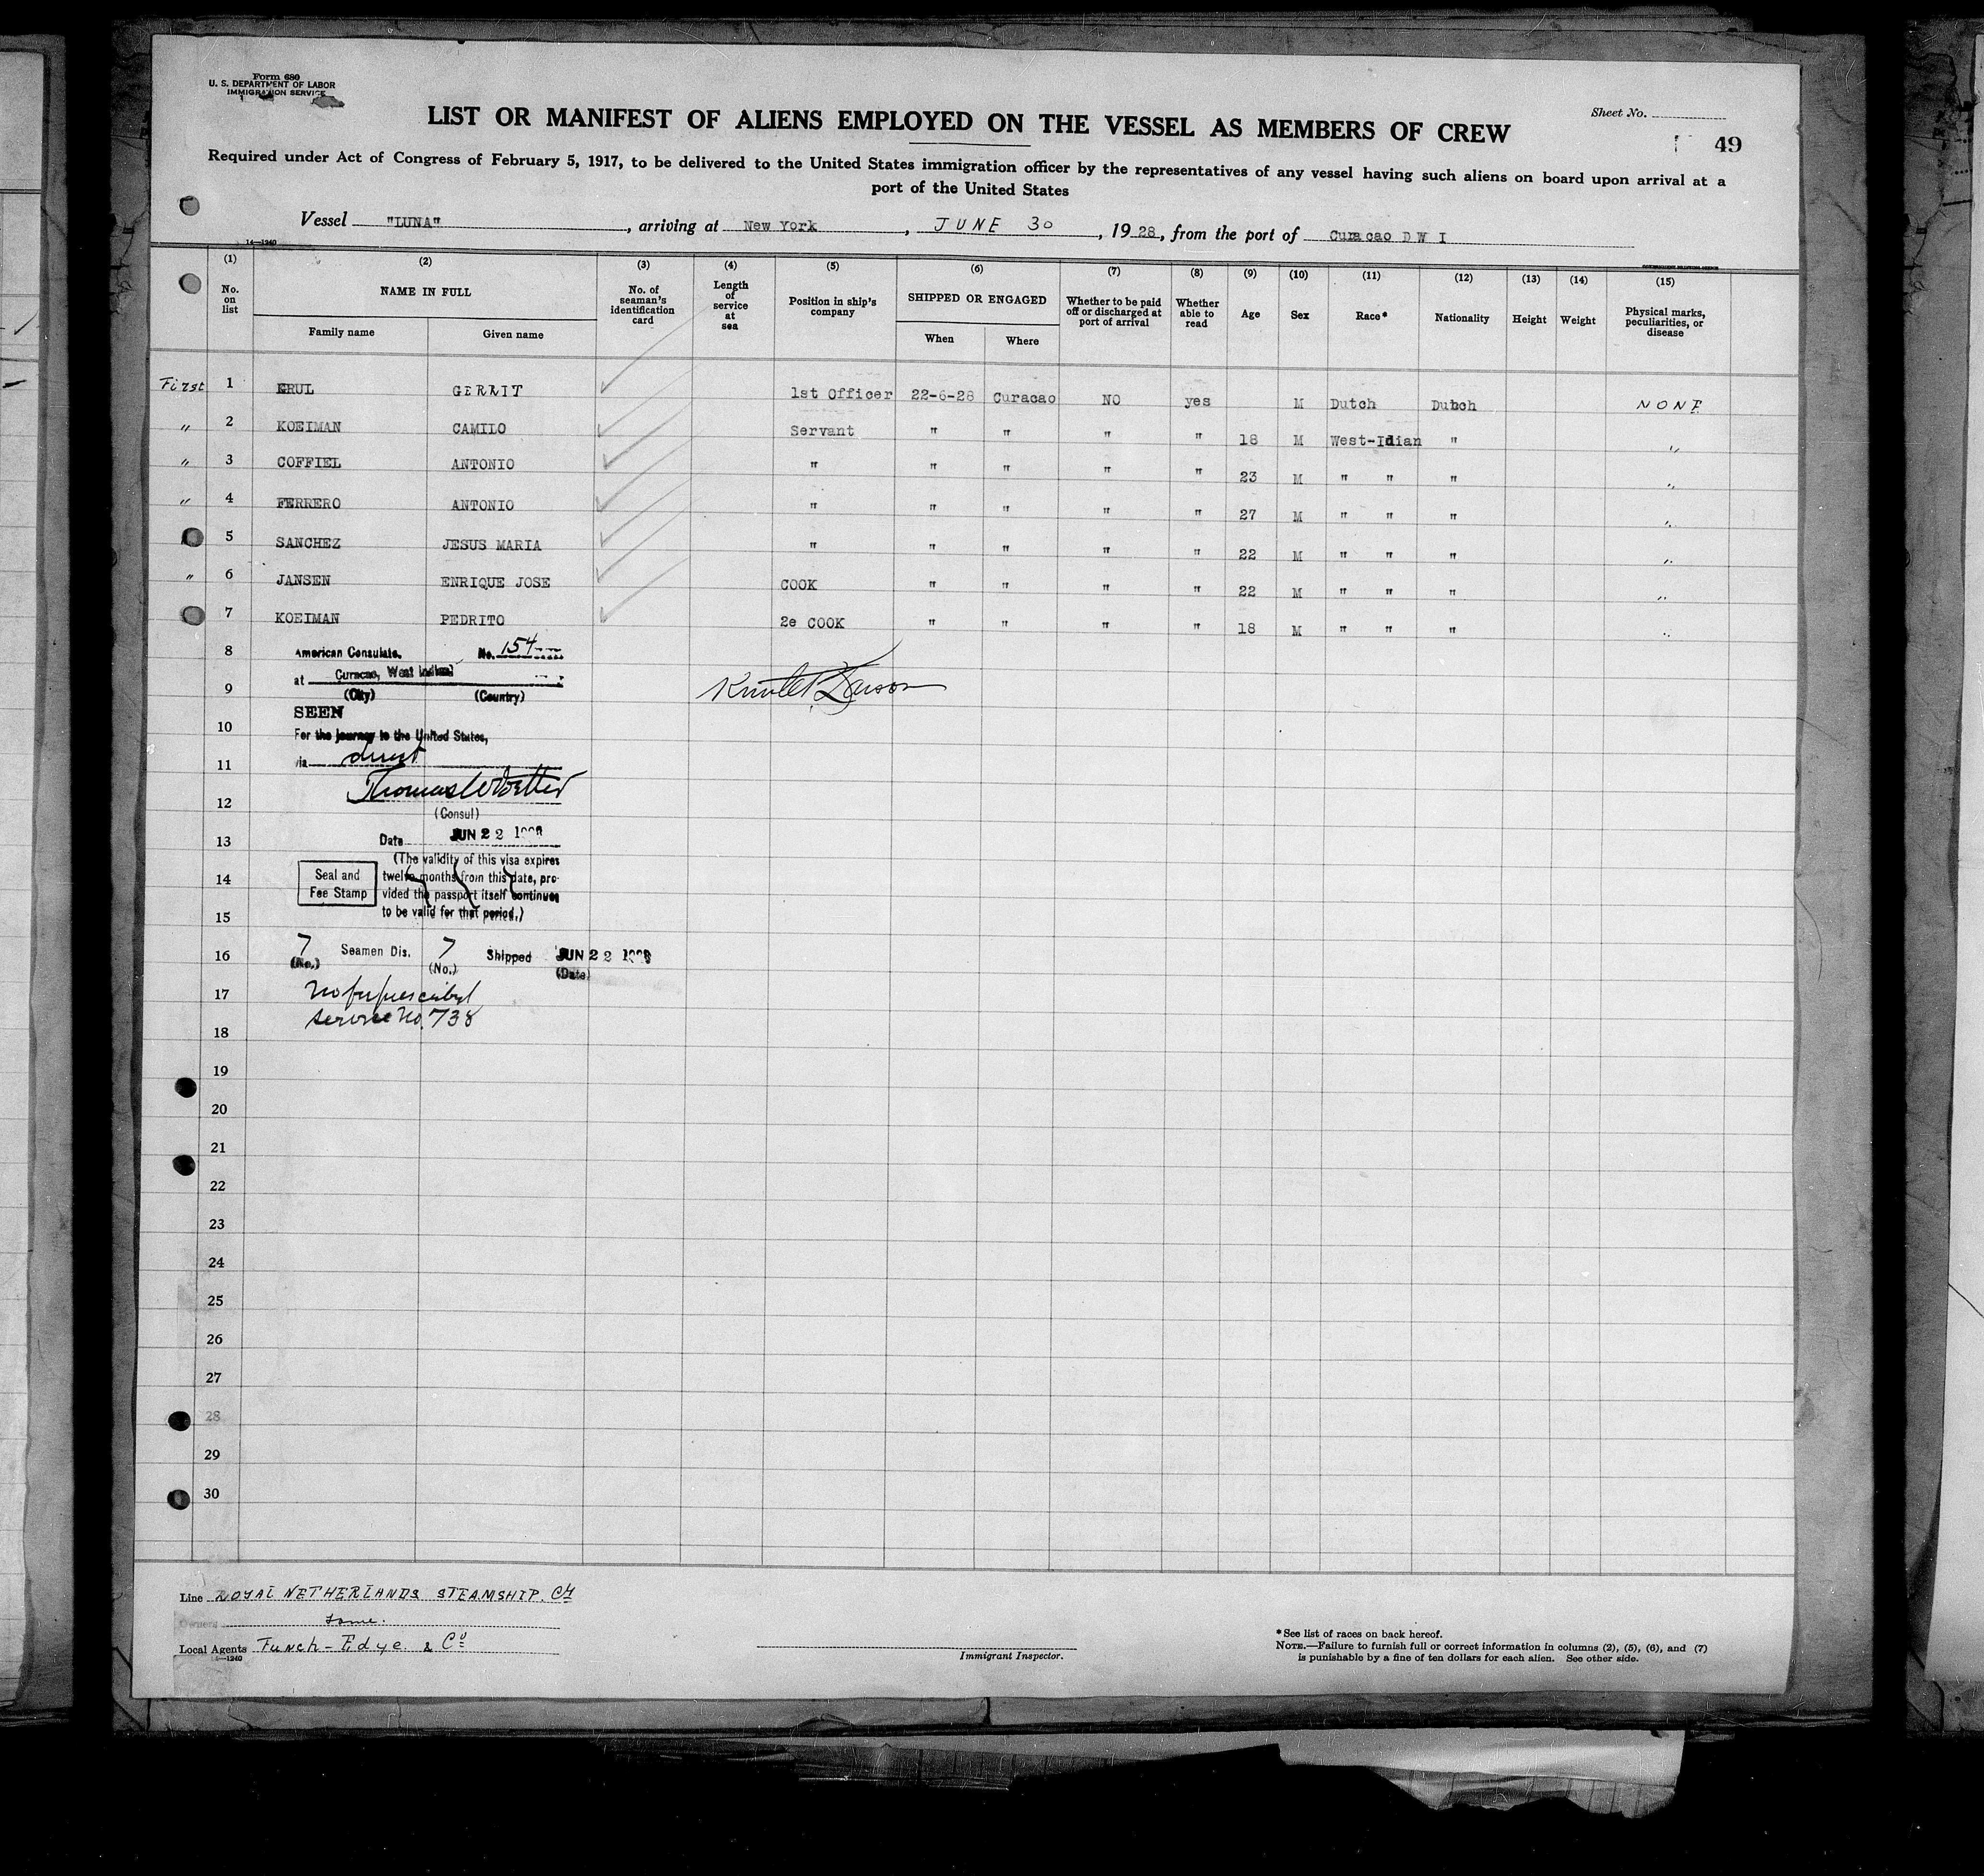 Form 680
U. S. DEPARTMENT OF LABOR
IMMIGRATION SERVICE
Sheet No.
LIST OR MANIFEST OF ALIENS EMPLOYED ON THE VESSEL AS MEMBERS OF CREW
49
Required under Act of Congress of February 5, 1917, to be delivered to the United States immigration officer by the representatives of any vessel having such aliens on board upon arrival at a
port of the United States
Vessel "LUNA", arriving at New York, JUNE 30, 1928, from the port of Curacao D W I
14—1240
GOVERNMENT PRINTING OFFICE
(1) (2) (3) (4) (5) (6) (7) (8) (9) (10) (11) (12) (13) (14) (15)
No. on list NAME IN FULL Family name Given name No. of seaman's identification card Length of service at sea Position in ship's company SHIPPED OR ENGAGED When Where Whether to be paid off or discharged at port of arrival Whether able to read Age Sex Race* Nationality Height Weight Physical marks, peculiarities, or disease
First 1 KRUL GERRIT 1st Officer 22-6-28 Curacao NO yes M Dutch Dutch NONE
" 2 KOEIMAN CAMILO Servant " " " " 18 M West-Idian " "
" 3 COFFIEL ANTONIO " " " " " 23 M " " " "
" 4 FERRERO ANTONIO " " " " " 27 M " " " "
5 SANCHEZ JESUS MARIA " " " " " 22 M " " " "
" 6 JANSEN ENRIQUE JOSE COOK " " " " 22 M " " " "
7 KOEIMAN PEDRITO 2e COOK " " " " 18 M " " " "
8 American Consulate, No. 154
at Curacao, West Indies
9 (City) (Country)
SEEN
10 For the journey to the United States,
11 via direct
12
(Consul)
13 Date JUN 22 1928
(The validity of this visa expires
14 Seal and Fee Stamp twelve months from this date, pro-
vided the passport itself continues
15 to be valid for that period.)
16 7 Seamen Dis. 7 Shipped JUN 22 1928
(No.) (No.) (Date)
17 No fee prescribed
Service No. 738
18
19
20
21
22
23
24
25
26
27
28
29
30
Line ROYAL NETHERLANDS STEAMSHIP. Cy
Owners same.
Local Agents Funch-Edye & Co
14—1240
Immigrant Inspector.
*See list of races on back hereof.
NOTE.—Failure to furnish full or correct information in columns (2), (5), (6), and (7)
is punishable by a fine of ten dollars for each alien. See other side.